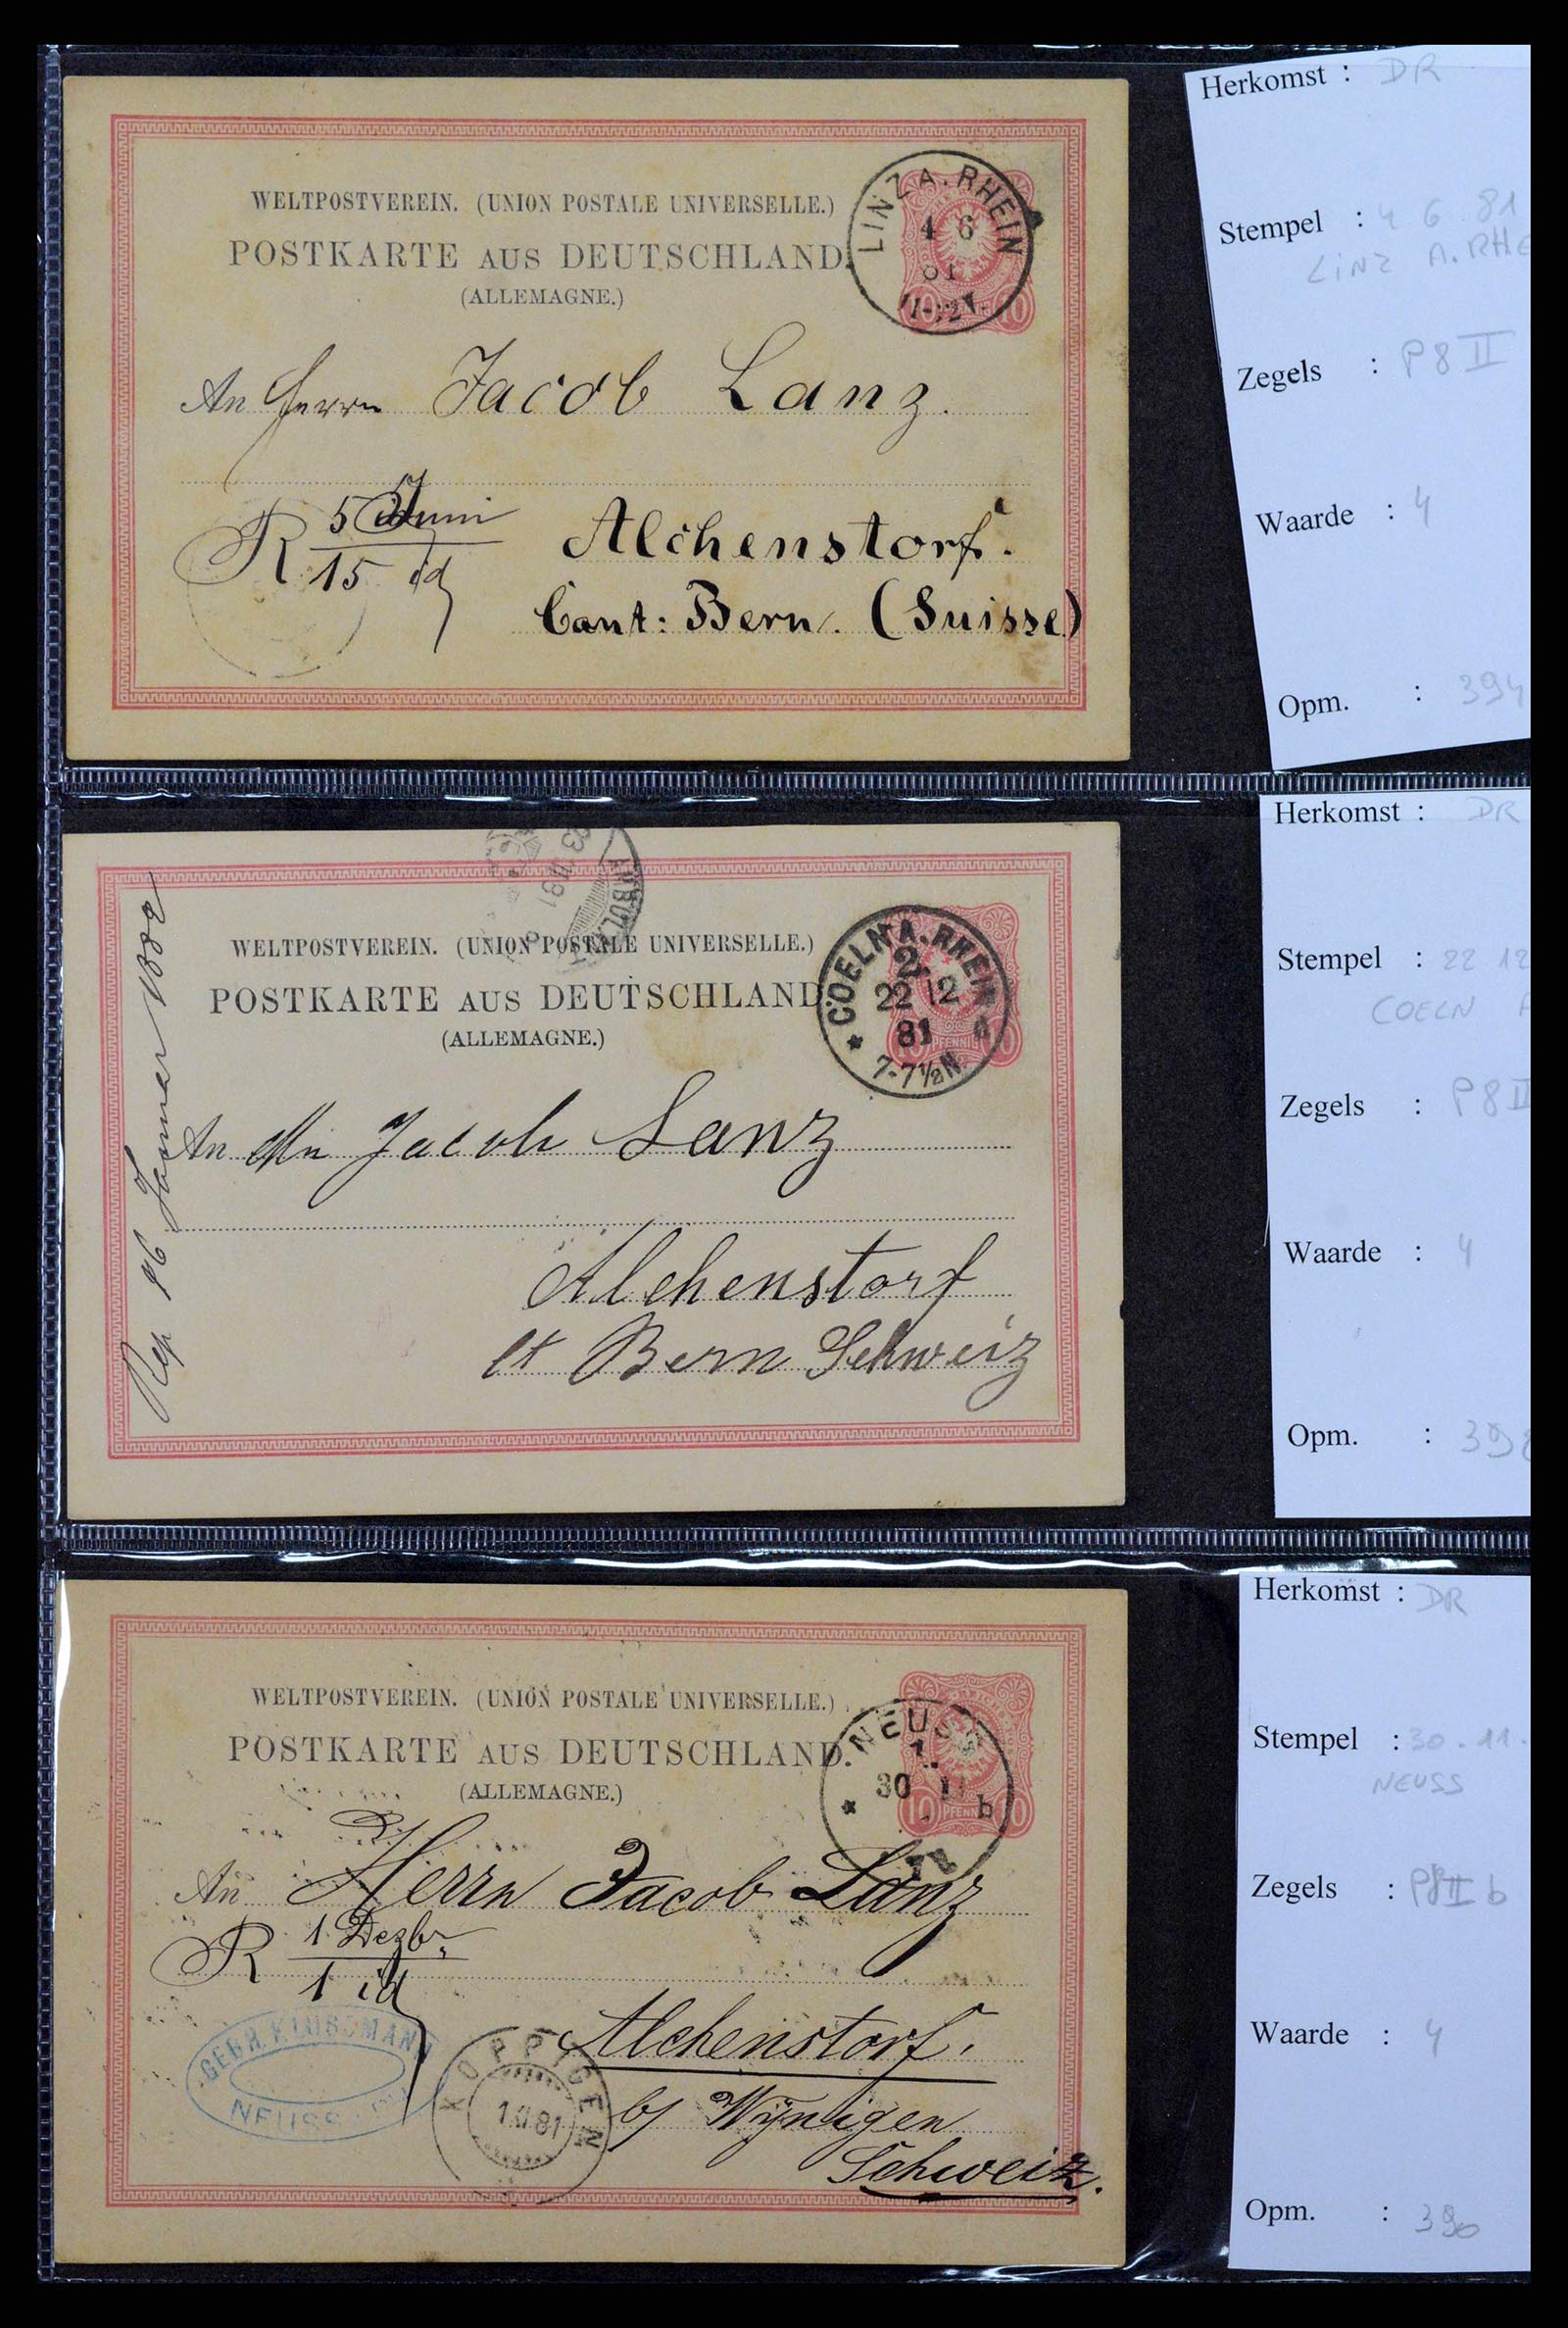 WELTPOSTVEREIN. (UNION POSTALE UNIVERSELLE.)
POSTKARTE AUS DEUTSCHLAND.
(ALLEMAGNE.)
LINZ A. RHEIN
4 6
81
11-12 V.
An Herrn Jacob Lanz.
R 5 Juni
15 id
Alchenstorf.
Cant: Bern. (Suisse)
Herkomst : DR
Stempel : 4 6 81
LINZ A. RHE
Zegels : P8 II
Waarde : 4
Opm. : 394
WELTPOSTVEREIN. (UNION POSTALE UNIVERSELLE.)
POSTKARTE AUS DEUTSCHLAND
(ALLEMAGNE.)
COELN A. RHEIN
2.
22 12
81
7-7½ N.
10 PFENNIG
An Jacob Lanz
Alchenstorf
Ct Bern Schweiz
Rep 16 Januar 1882
Herkomst : DR
Stempel : 22 12
COELN A
Zegels : P8 II
Waarde : 4
Opm. : 398
WELTPOSTVEREIN. (UNION POSTALE UNIVERSELLE.)
POSTKARTE AUS DEUTSCHLAND.
(ALLEMAGNE.)
NEUSS
30 11
b
10 PFENNIG 10
An Herrn Jacob Lanz
R 1 Dezbr.
1 id
Alchenstorf.
b/ Wynigen
Schweiz.
NEUSS
KOPPIGEN
1 XII 81
Herkomst : DR
Stempel : 30.11.
NEUSS
Zegels : P8 II b
Waarde : 4
Opm. : 390